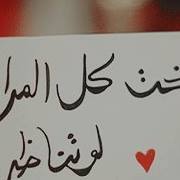 خت كل المرا
لو تناظر